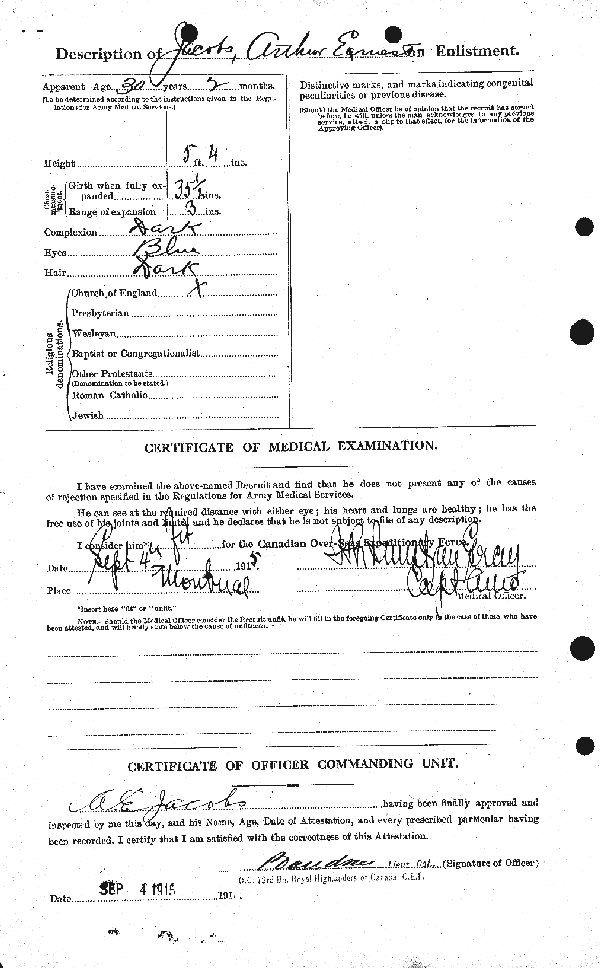 Description of Jacobs, Arthur Earnest on Enlistment.
Apparent Age 30 years 2 months.
(To be determined according to the instructions given in the Regulations for Army Medical Services.)
Height 5 ft. 4 ins.
Chest measurement.
Girth when fully expanded 35½ ins.
Range of expansion 3 ins.
Complexion Dark
Eyes Blue
Hair Dark
Religious denominations.
Church of England X
Presbyterian
Wesleyan
Baptist or Congregationalist
Other Protestants
(Denomination to be stated.)
Roman Catholic
Jewish
Distinctive marks, and marks indicating congenital
peculiarities or previous disease.
(Should the Medical Officer be of opinion that the recruit has served
before, he will, unless the man acknowledges to any previous
service, attach a slip to that effect, for the information of the
Approving Officer).
CERTIFICATE OF MEDICAL EXAMINATION.
I have examined the above-named Recruit and find that he does not present any of the causes
of rejection specified in the Regulations for Army Medical Services.
He can see at the required distance with either eye; his heart and lungs are healthy; he has the
free use of his joints and limbs, and he declares that he is not subject to fits of any description.
I consider him* fit for the Canadian Over-Seas Expeditionary Force.
Date Sept 4th 1915
Place Montreal
Capt
Medical Officer.
*Insert here "fit" or "unfit."
NOTE.—Should the Medical Officer consider the Recruit unfit, he will fill in the foregoing Certificate only in the case of those who have
been attested, and will briefly state below the cause of unfitness:—
CERTIFICATE OF OFFICER COMMANDING UNIT.
A E Jacobs having been finally approved and
inspected by me this day, and his Name, Age, Date of Attestation, and every prescribed particular having
been recorded, I certify that I am satisfied with the correctness of this Attestation.
Lieut Col. (Signature of Officer)
O.C. 73rd Bn. Royal Highlanders of Canada C.E.F.
Date SEP 4 1915 191